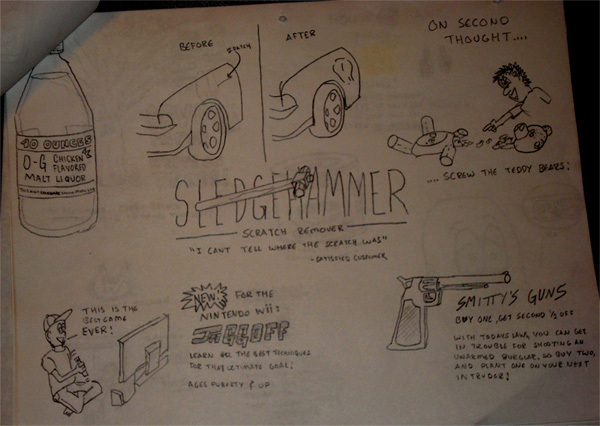 BEFORE
SCRATCH
AFTER
ON SECOND
THOUGHT....
.... SCREW THE TEDDY BEARS!
40 OUNCES
O-G CHICKEN
FLAVORED
MALT LIQUOR
SLEDGEHAMMER
SCRATCH REMOVER
"I CANT TELL WHERE THE SCRATCH WAS"
-SATISFIED CUSTOMER
THIS IS THE
BEST GAME
EVER!
NEW! FOR THE
NINTENDO WII:
JAGGOFF
LEARN ALL THE BEST TECHNIQUES
FOR THAT ULTIMATE GOAL!
AGES PUBERTY & UP
SMITTY'S GUNS
BUY ONE, GET SECOND ½ OFF
WITH TODAYS LAWS, YOU CAN GET
IN TROUBLE FOR SHOOTING AN
UNARMED BURGLAR. SO BUY TWO,
AND PLANT ONE ON YOUR NEXT
INTRUDER!